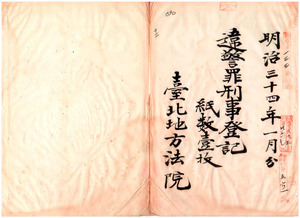 明治三十四年一月分
違警罪刑事登記
紙數壹枚
臺北地方法院